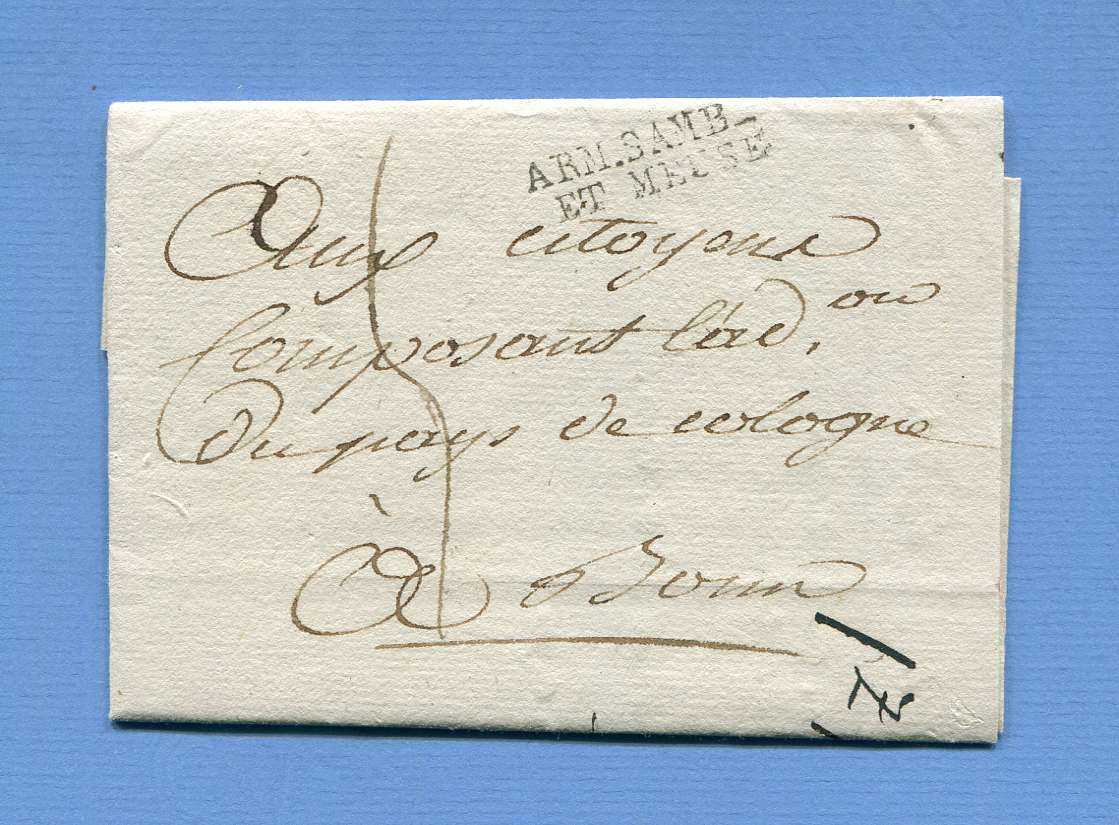 ARM. SAMB_
ET MEUSE
Aux citoyens
Composant l'ad.on
Du pays de cologne
à Bonn